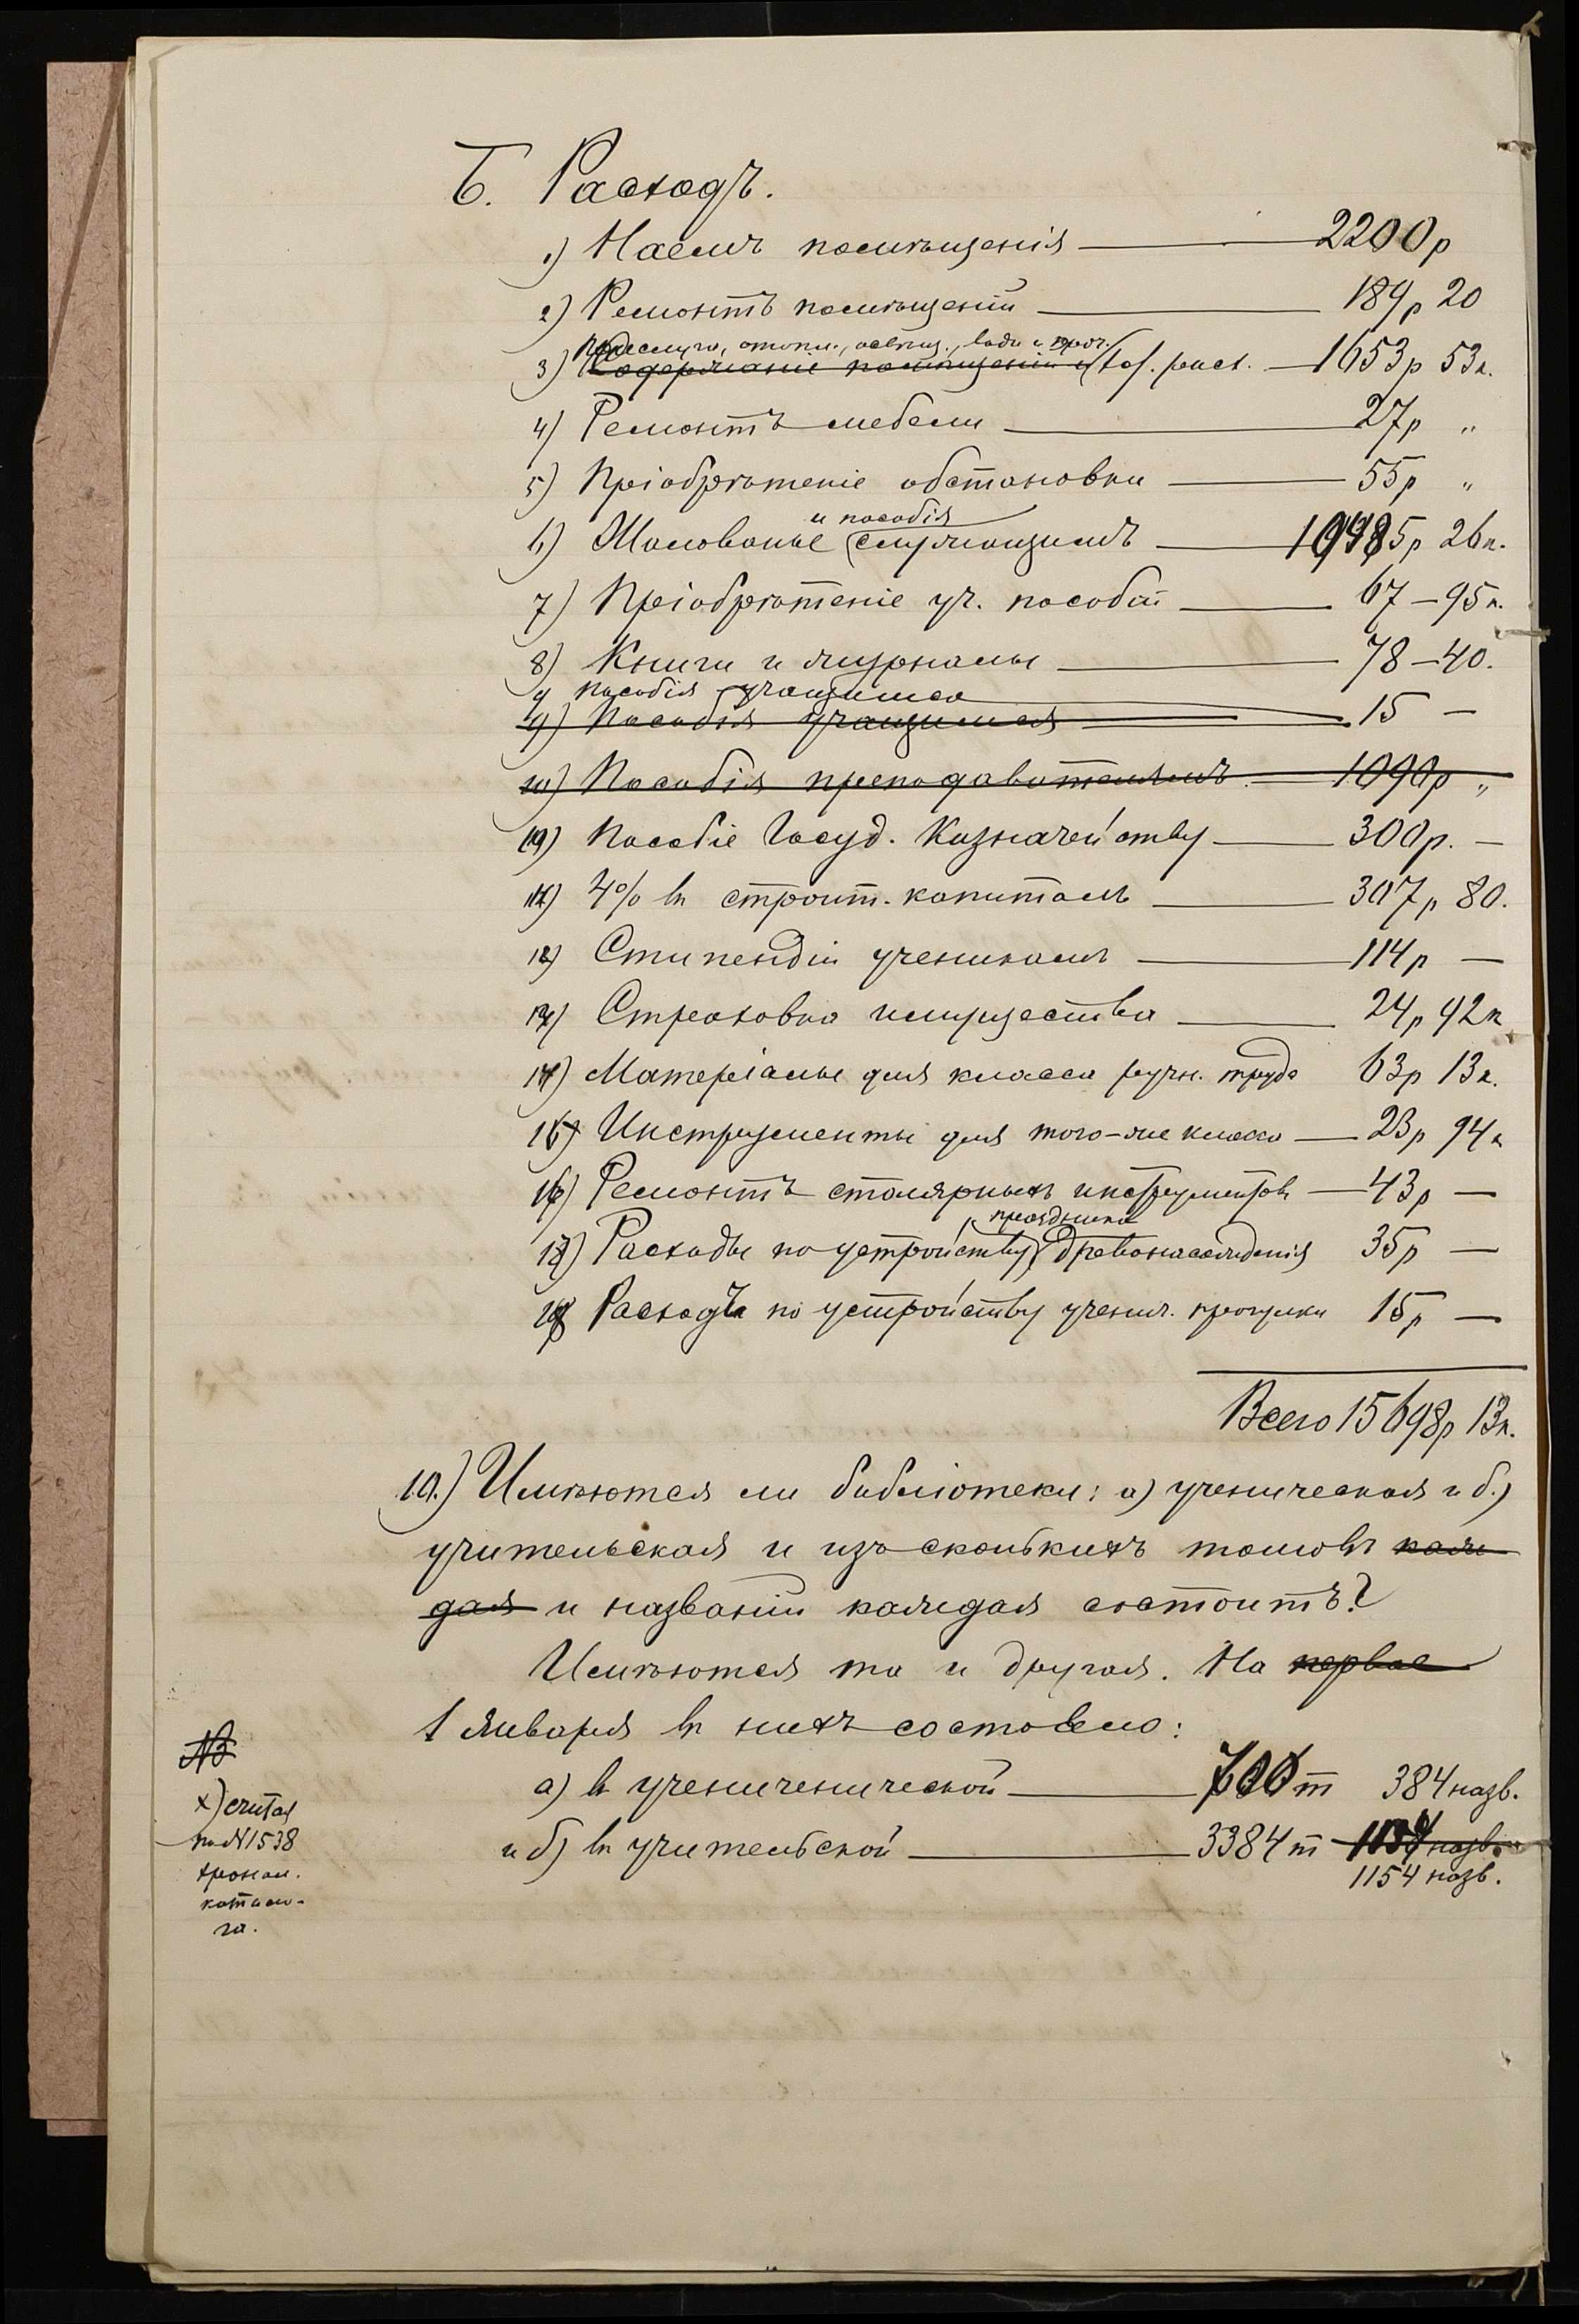 Б. Расходъ.
1) Наемъ помѣщенія — 2200р
2) Ремонтъ помѣщеній — 189р 20
Прислуга, отопл., освѣщ., вода и проч.
3) Содержаніе помѣщеній и хоз. расх. — 1653р 53к.
4) Ремонтъ мебели — 27р „
5) Пріобрѣтеніе обстановки — 55р „
и пособія
6) Жалованье служащимъ — 10485р 26к.
7) Пріобрѣтеніе уч. пособій — 67 — 95к.
8) Книги и журналы — 78 — 40.
9 пособія учащимся
9) Пособія учащимся — 15 —
10) Пособія преподавателямъ — 1090р „
10) Пособіе Госуд. Казначейству — 300р. —
11) 4% въ строит. капиталъ — 307р 80.
12) Стипендіи ученикамъ — 114р —
13) Страховка имущества — 24р 92к
14) Матеріалы для класса ручн. труда 63р 13к.
15) Инструменты для того-же класса — 23р 94к
16) Ремонтъ столярныхъ инструментовъ — 43р —
праздника
17) Расходы по устройству древонасажденія 35р —
18) Расходы по устройству ученич. прогулки 15р —
Всего 15698р 13к.
10.) Имѣются ли библіотеки: а) ученическая и б.)
учительская и изъ сколькихъ томовъ каж
дая и названій каждая состоитъ?
Имѣются та и другая. На первое
1 января въ нихъ состояло:
а) въ учениченической — 700 т 384 назв.
и б) въ учительской — 3384 т 1134 назв.
1154 назв.
NB
х) считая
по №1538
хронол.
катало-
га.